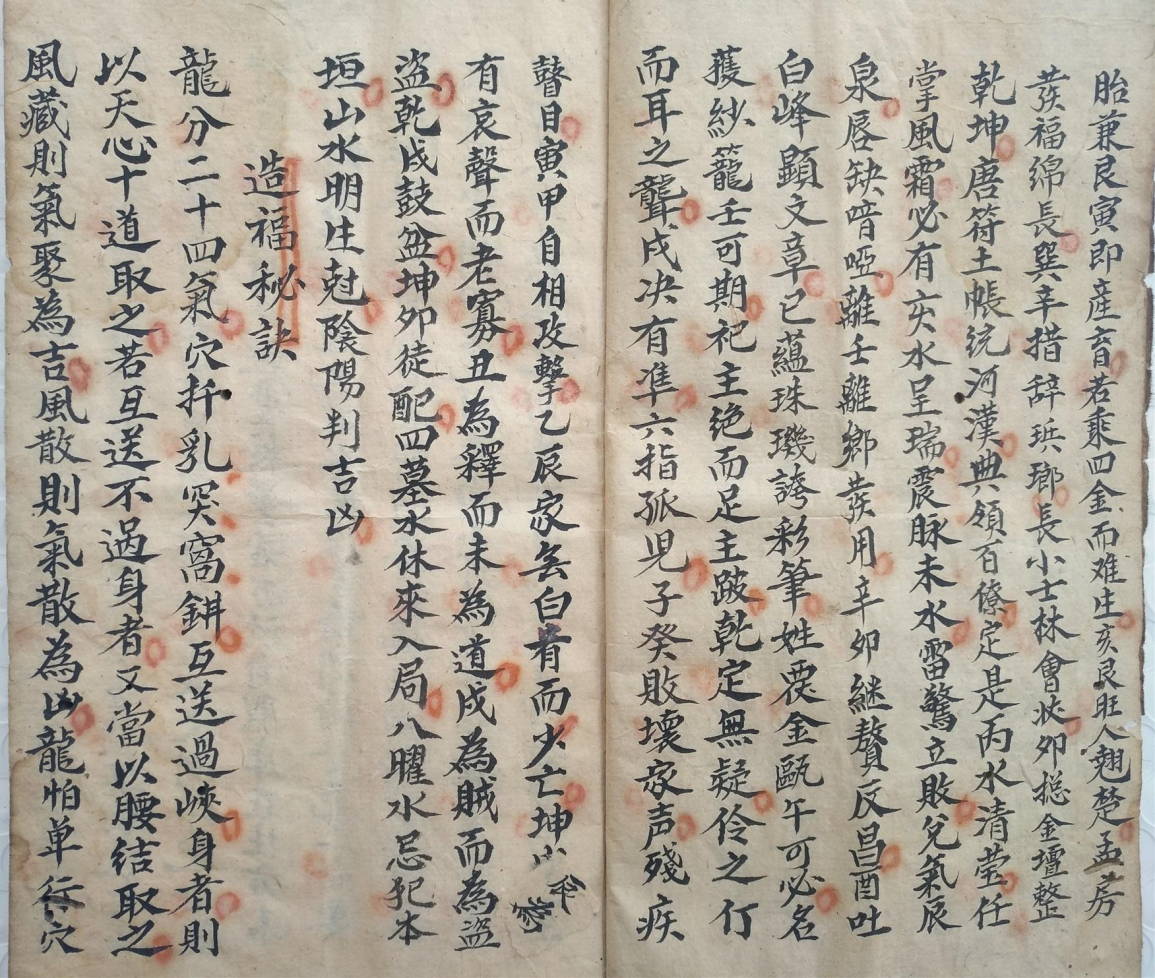 胎兼艮寅即産育若乘四金而难生亥艮旺人翘楚孟房
發福绵長巽辛措辞珙瑯長小士林會状卯捴金壇整
乾坤唐符土帳统河漢典領百僚定是丙水清莹任
掌風霜必有亥水呈瑞震脉未水雷驚立敗兌氣辰
泉唇缺喑啞離壬離鄉發用辛卯継贅反昌酉吐
白峰顯文章已蘊珠璣誇彩筆姓覆金甌午可必名
獲紗籠壬可期祀主绝而足主跛乾定無疑伶之仃
而耳之聾戌决有準六指孤児子癸敗壞家声殘疾
瞽目寅甲自相攻擊乙辰家無白首而少亡坤山
有哀聲而老寡丑為釋而未為道戌為賊而為盜
盜乾戌鼓盆坤卯徒配四墓水休來入局八曜水忌犯本
垣山水明生尅陰陽判吉凶
造福秘訣
龍分二十四氣穴扦乳突窩鉗互送過峽身者則
以天心十道取之若互送不過身者又當以腰结取之
風藏則氣聚為吉風散則氣散為凶龍怕单行穴